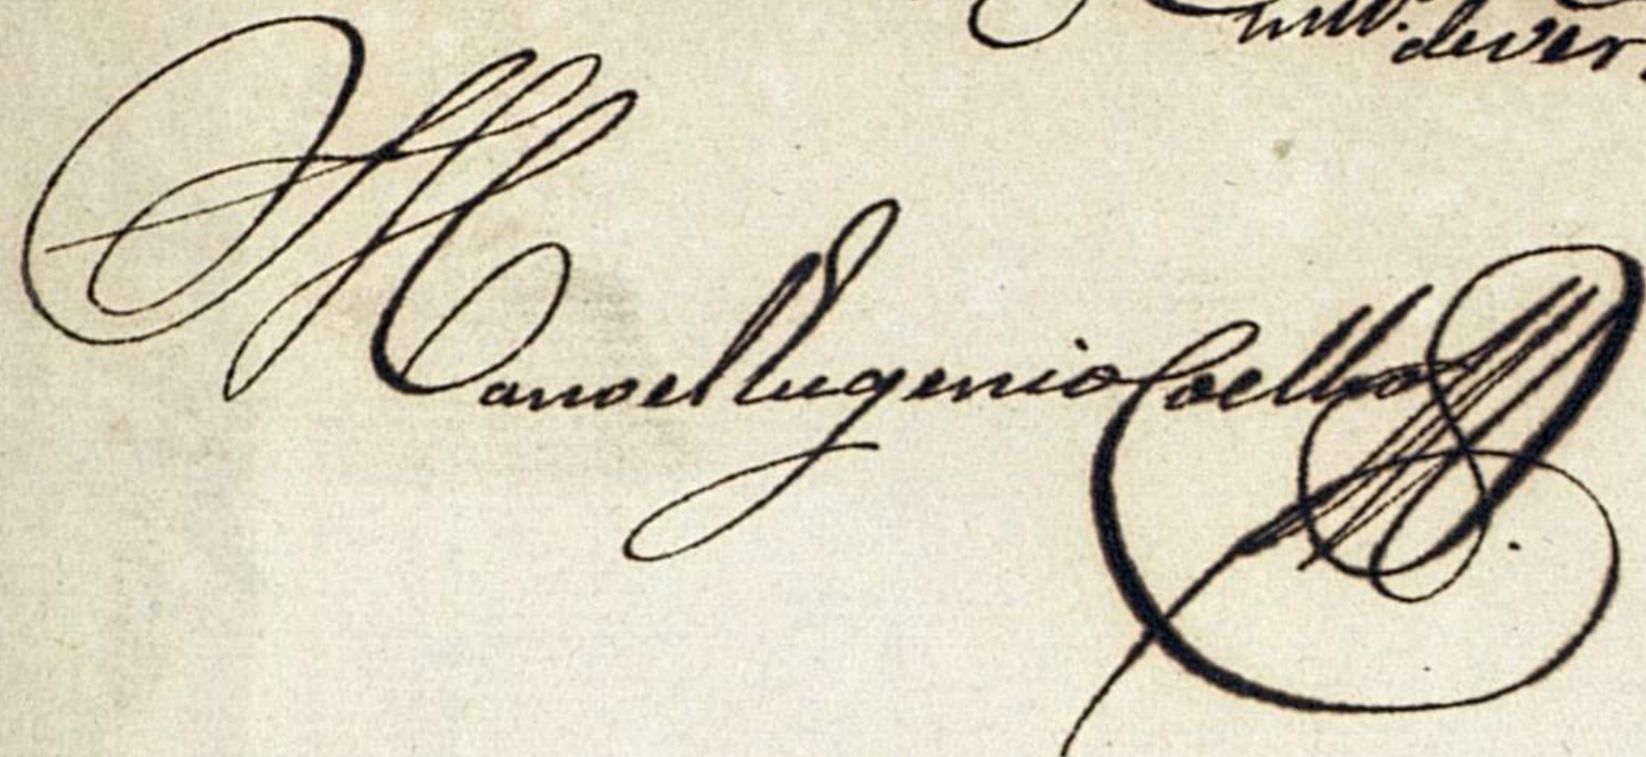 dever
Manoel Eugenio Coelho